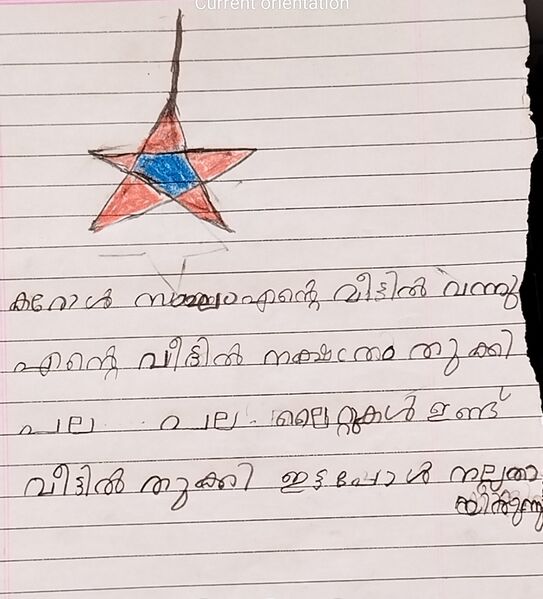 Current orientation
കരോൾ സംഘം എന്റെ വീട്ടിൽ വന്നു
എന്റെ വീട്ടിൽ നക്ഷത്രം തുക്കി
പല പല ലൈറ്റുകൾ ഉണ്ട്
വീട്ടിൽ തുക്കി ഇട്ടപ്പോൾ നല്ലതാ
യിരുന്നു